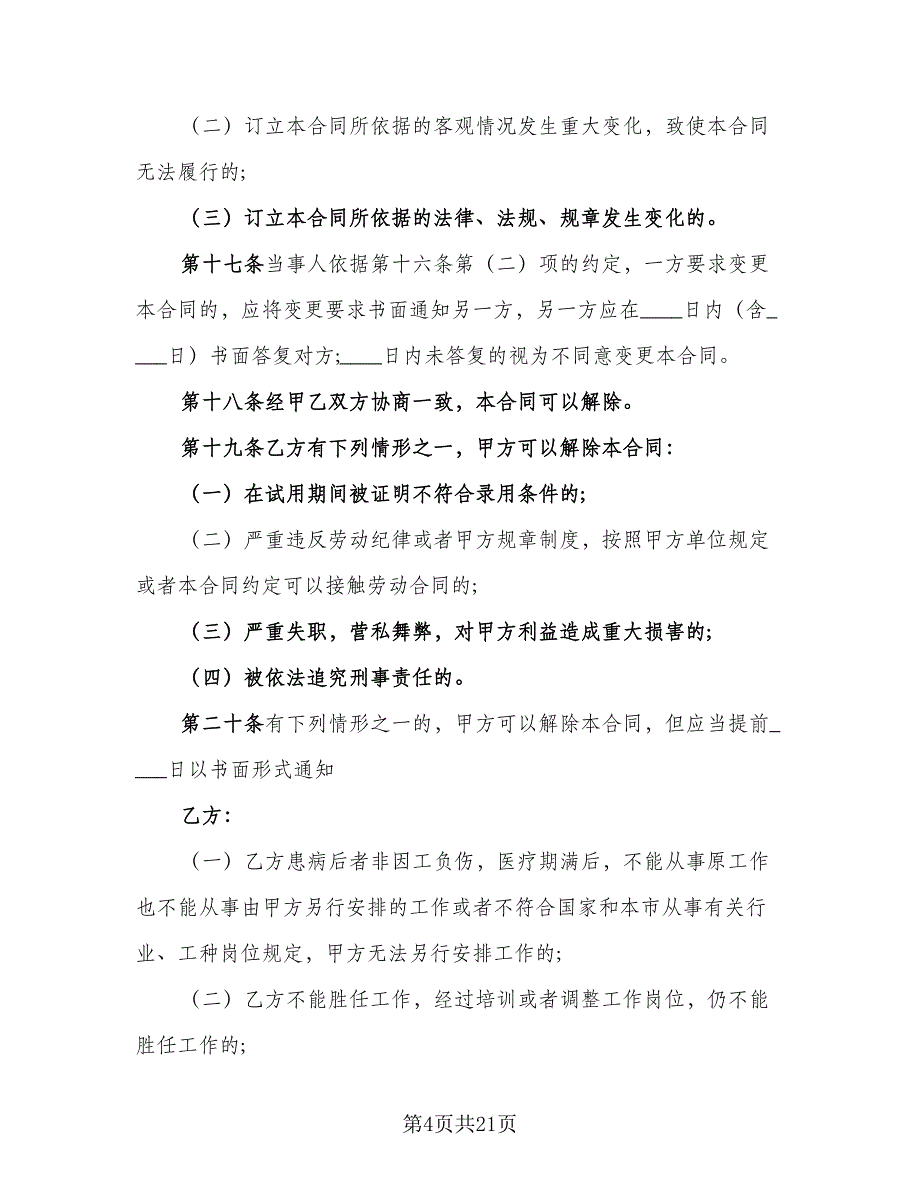 （二）订立本合同所依据的客观情况发生重大变化，致使本合同
无法履行的;
（三）订立本合同所依据的法律、法规、规章发生变化的。
第十七条当事人依据第十六条第（二）项的约定，一方要求变更
本合同的，应将变更要求书面通知另一方，另一方应在____日内（含_
___日）书面答复对方;____日内未答复的视为不同意变更本合同。
第十八条经甲乙双方协商一致，本合同可以解除。
第十九条乙方有下列情形之一，甲方可以解除本合同：
（一）在试用期间被证明不符合录用条件的;
（二）严重违反劳动纪律或者甲方规章制度，按照甲方单位规定
或者本合同约定可以接触劳动合同的;
（三）严重失职，营私舞弊，对甲方利益造成重大损害的;
（四）被依法追究刑事责任的。
第二十条有下列情形之一的，甲方可以解除本合同，但应当提前_
___日以书面形式通知
乙方：
（一）乙方患病后者非因工负伤，医疗期满后，不能从事原工作
也不能从事由甲方另行安排的工作或者不符合国家和本市从事有关行
业、工种岗位规定，甲方无法另行安排工作的;
（二）乙方不能胜任工作，经过培训或者调整工作岗位，仍不能
胜任工作的;
第4页共21页